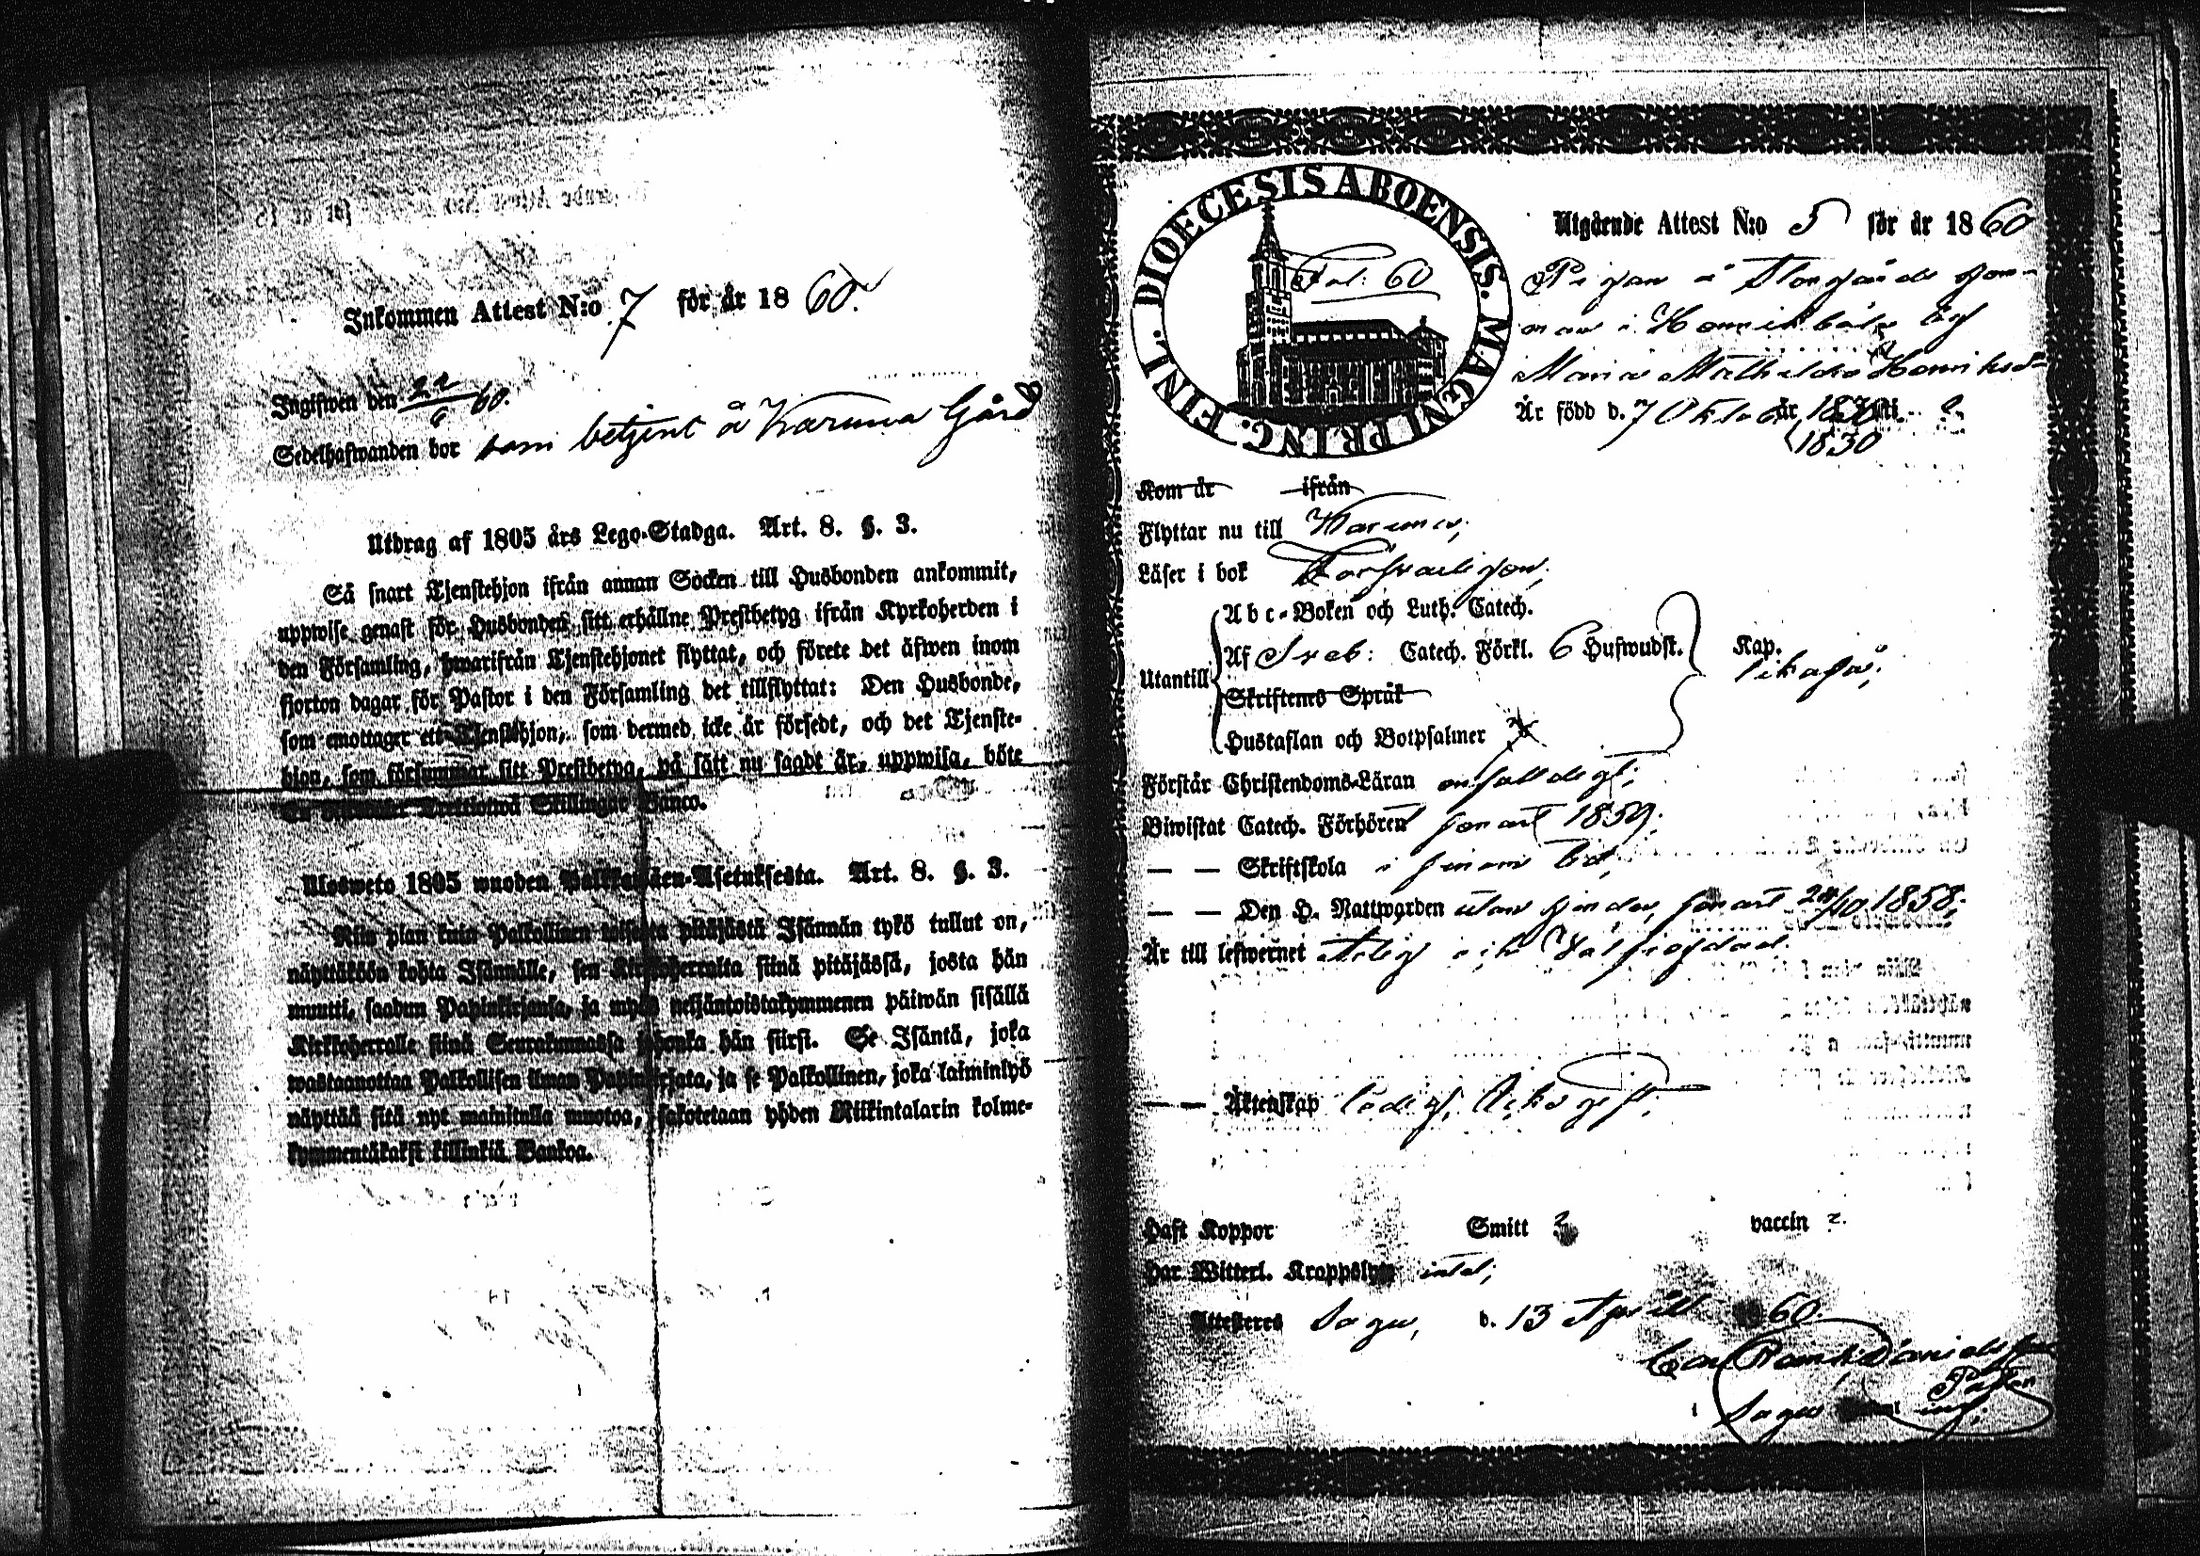 Inkommen Attest N:o 7 för år 1860.
Ingifwen den 22/6 60.
Sedelhafwanden bor som betjent å Karuna Gård
Utdrag af 1805 års Lego-Stadga. Art. 8. §. 3.
Så snart Tjenstehjon ifrån annan Socken till Husbonden ankommit,
uppwise genast för Husbonden sitt erhållne Prestbetyg ifrån Kyrkoherden i
den Församling, hwarifrån Tjenstehjonet flyttat, och förete det äfwen inom
fjorton dagar för Pastor i den Församling det tillflyttat: Den Husbonde,
som emottager ett Tjenstehjon, som dermed icke är försedt, och det Tjenste-
hjon, som försummar sitt Prestbetyg, på sätt nu sagdt är, uppwisa, böte
En Riksdaler Trettiotwå Skillingar Banco.
Ulosweto 1805 wuoden Palkkawäen-Asetuksesta. Art. 8. §. 3.
Niin pian kuin Palkollinen toisesta pitäjästä Isännän tykö tullut on,
näyttäköön kohta Isännälle, sen Kirkkoherralta siinä pitäjässä, josta hän
muutti, saadun Papinkirjansa, ja myös neljäntoistakymmenen päiwän sisällä
Kirkkoherralle siinä Seurakunnassa johonka hän siirsi. Se Isäntä, joka
wastaanottaa Palkollisen ilman Papinkirjata, ja se Palkollinen, joka laiminlyö
näyttää sitä nyt mainitulla muotoa, sakotetaan yhden Riikintalarin kolme-
kymmentäkaksi killinkiä Bankoa.
DIOECESIS ABOENSIS. MAGNI PRINC. FINL.
Fol: 60
Utgående Attest N:o 5 för år 1860
Pigan å Storgårds
i
Maria Mathilda Henriksdr
Är född d. 7 Oktob. år
1830
Kom år ifrån
Flyttar nu till Karuna,
Läser i bok Försvarligen,
Abc-Boken och Luth. Catech.
Af Sveb: Catech. Förkl. 6 Hufwudst. Kap.
Utantill likaså,
Skriftenes Språk
Hustaflan och Botpsalmer
Förstår Christendoms-Läran enfaldigt;
Biwistat Catech. Förhören senast 1859;
— — Skriftskola i sinom tid,
— — Den H. Nattwarden utan hinder, senast 24/10 1858;
Är till lefwernet ärlig och
— — Äktenskap ledig, Icke gift.
Haft Koppor Smitt ? vaccin ?
Har Witterl. Krappslyte intet;
Attesteras Sagu, d. 13 April 60
Carl Danielsson
Pastor
i Sagu